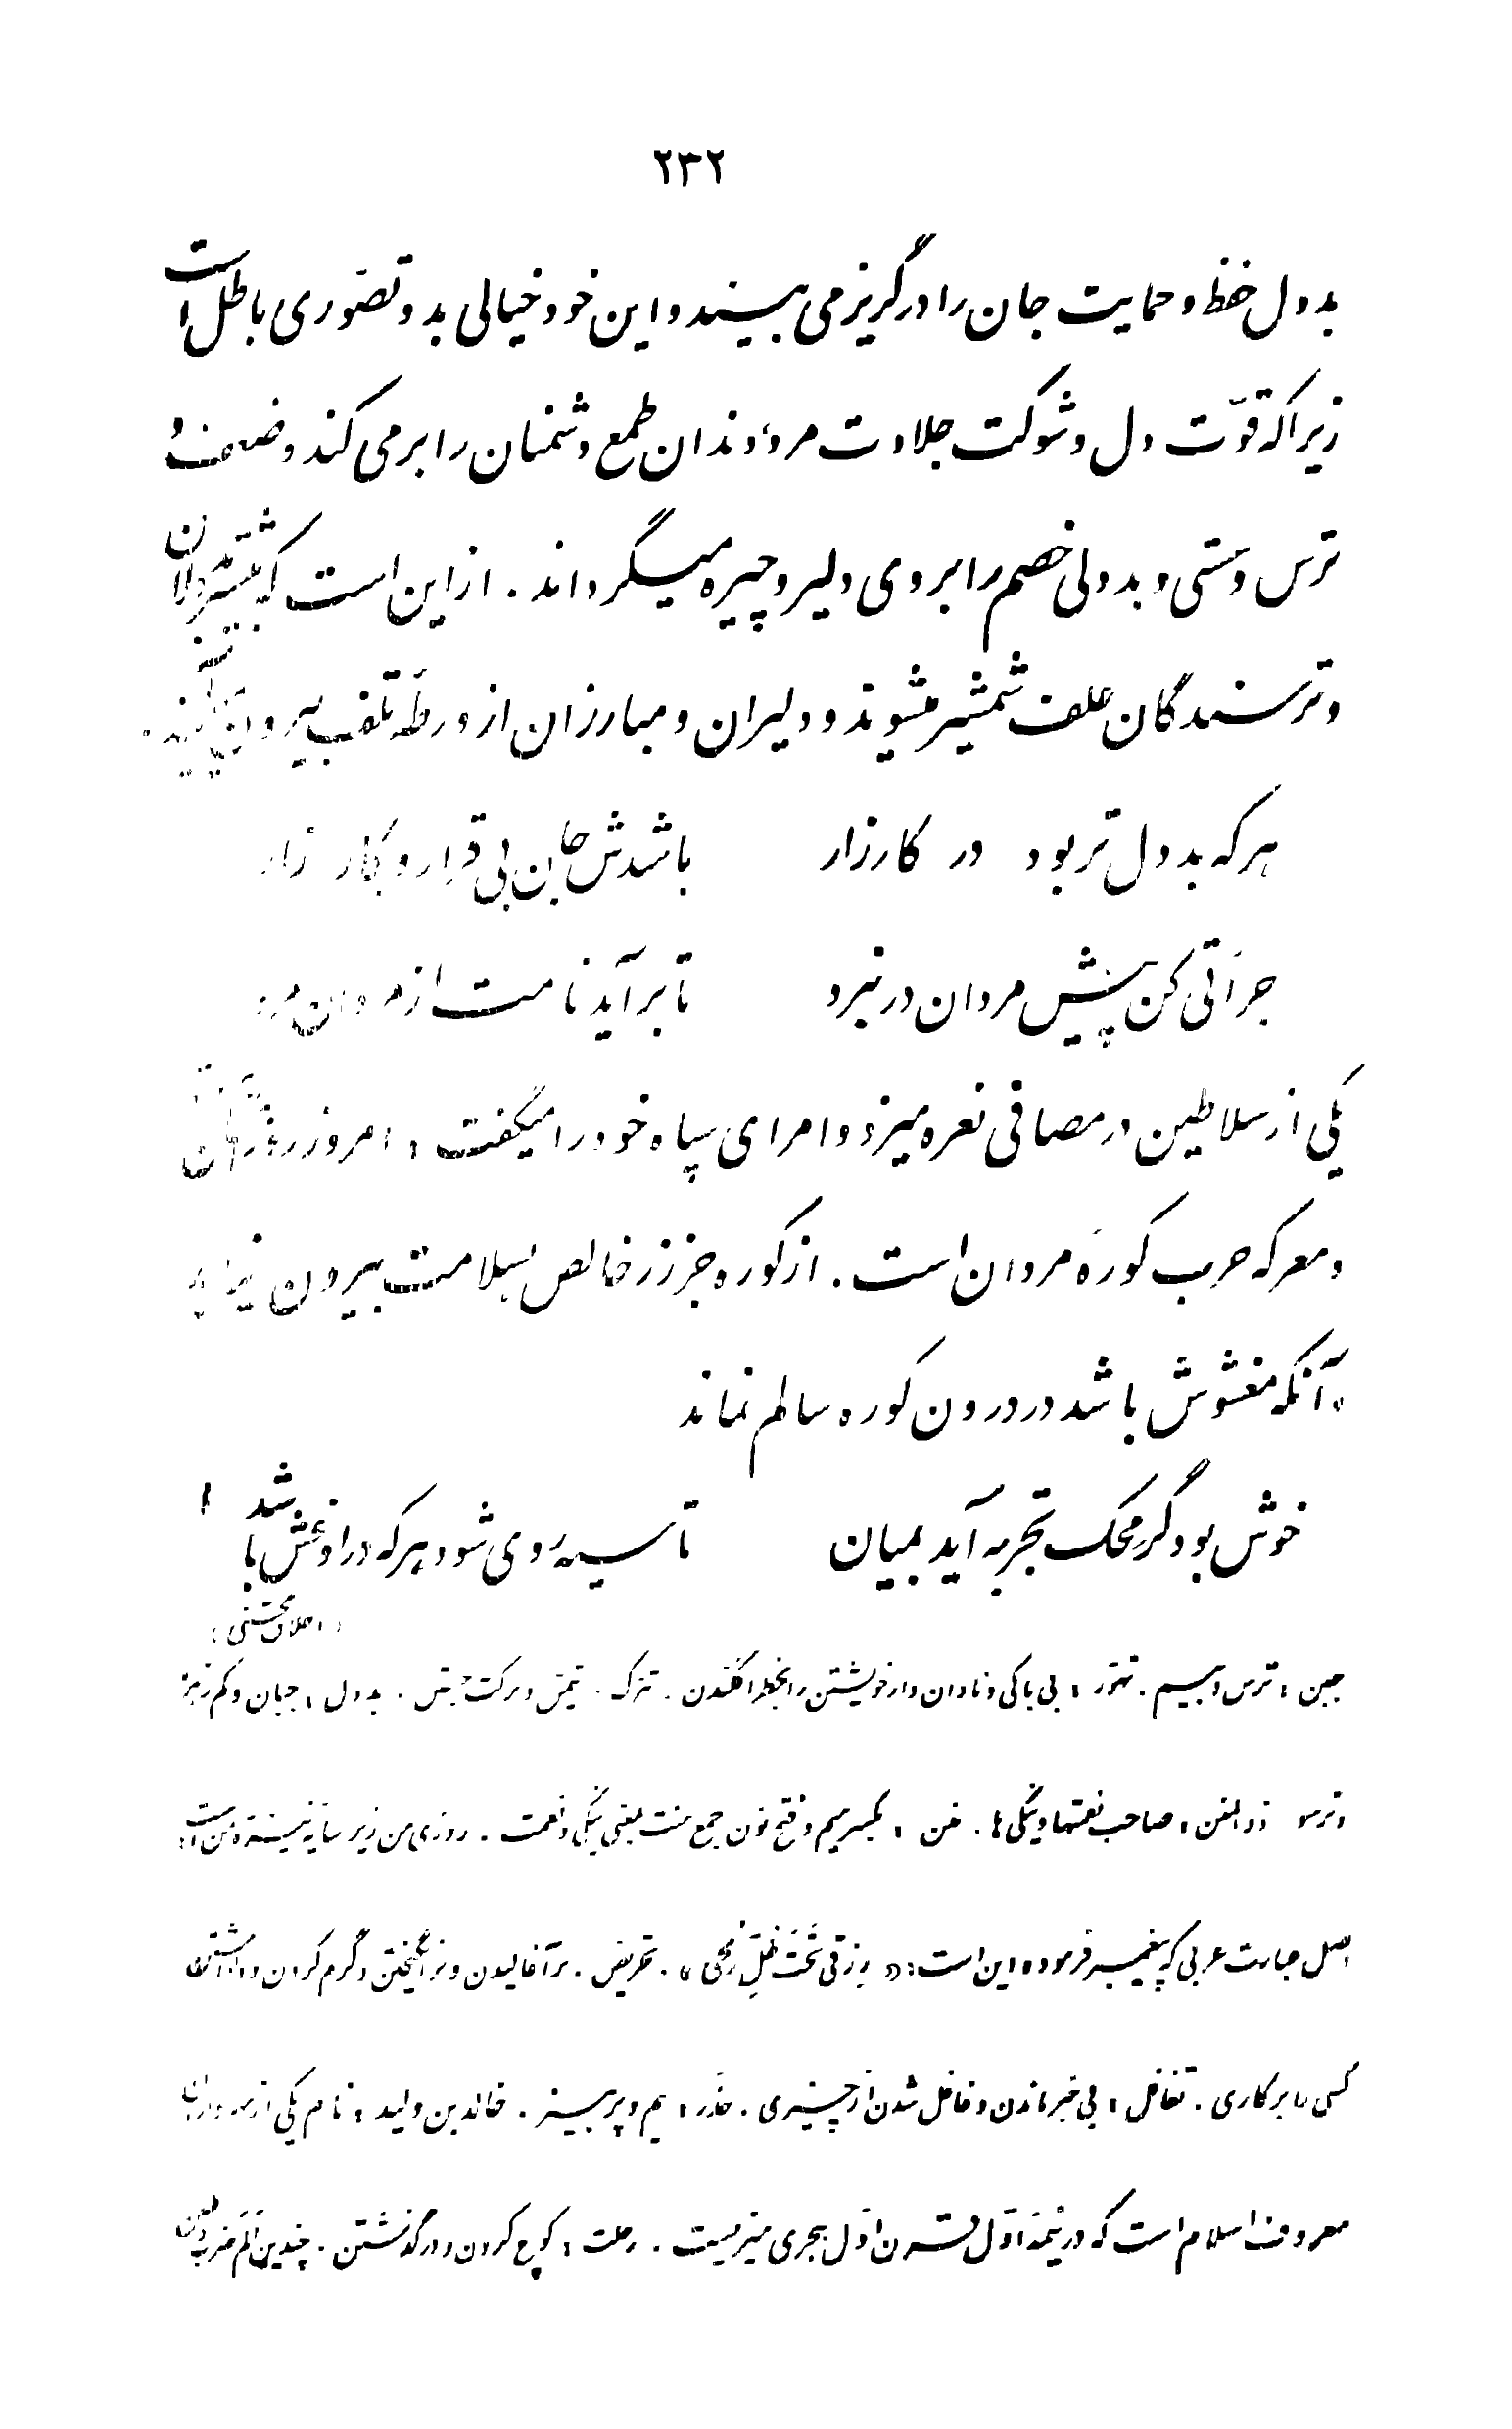 ۲۳۲
بددل حفظ و حمایت جان را در گریز می بیند و این خود خیالی بد و تصوری باطل است
زیرا که قوّت دل و شوکت جلادت مرد، دندان طمع دشمنان را بر می کند و ضعف و
ترس و سستی و بددلی خصم را بر وی دلیر و چیره میگرداند . از این است که بیشتر بددلان
و ترسندگان علف شمشیر میشوند و دلیران و مبارزان از ورطهٔ تلف بیرون
هر که بددل تر بود در کارزار
باشدش جان بی قرار و کار زار
جرأتی کن پیش مردان در نبرد
تا برآید نامت از مردان
یکی از سلاطین در مصافی نعره میزد و امرای سپاه خود را میگفت : امروز روز
و معرکه حرب کورهٔ مردان است . از کوره جز زر خالص بسلامت بیرون نیاید
و آنکه مغشوش باشد در درون کوره سالم نماند
خوش بود گر محک تجربه آید بمیان
تا سیه روی شود هر که در او غش باشد
( اخلاق محسنی )
جبن : ترس و بیم . تهور : بی باکی و نادان وار خویشتن را بخطر افکندن . بددل : جبان و کم زهره
و ترسو ذوالمنن : صاحب نعمتها و نیکی ها . منن : بکسر میم و فتح نون جمع منت بمعنی نیکی و نعمت . روزی من زیر سایه نیزه من است :
اصل عبارت عربی که پیغمبر فرموده این است : « رزقی تَحتَ ظِلِّ رُمحی » . تحریض . برآغالیدن و برانگیختن و گرم کردن و واداشتن
کسی را بر کاری . تغافل : بی خبر ماندن و غافل شدن از چیزی . حذر : بیم و پرهیز . خالد بن ولید : نام یکی از سرداران
معروف اسلام است که در نیمهٔ اوّل قرن اوّل هجری میزیست . رحلت : کوچ کردن و درگذشتن . چندین زخم ضرب و طعن